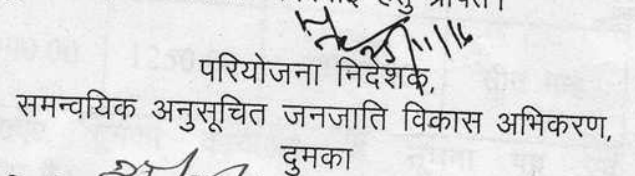 हेतु प्रेषित।
परियोजना निदेशक,
समन्वयिक अनुसूचित जनजाति विकास अभिकरण,
दुमका